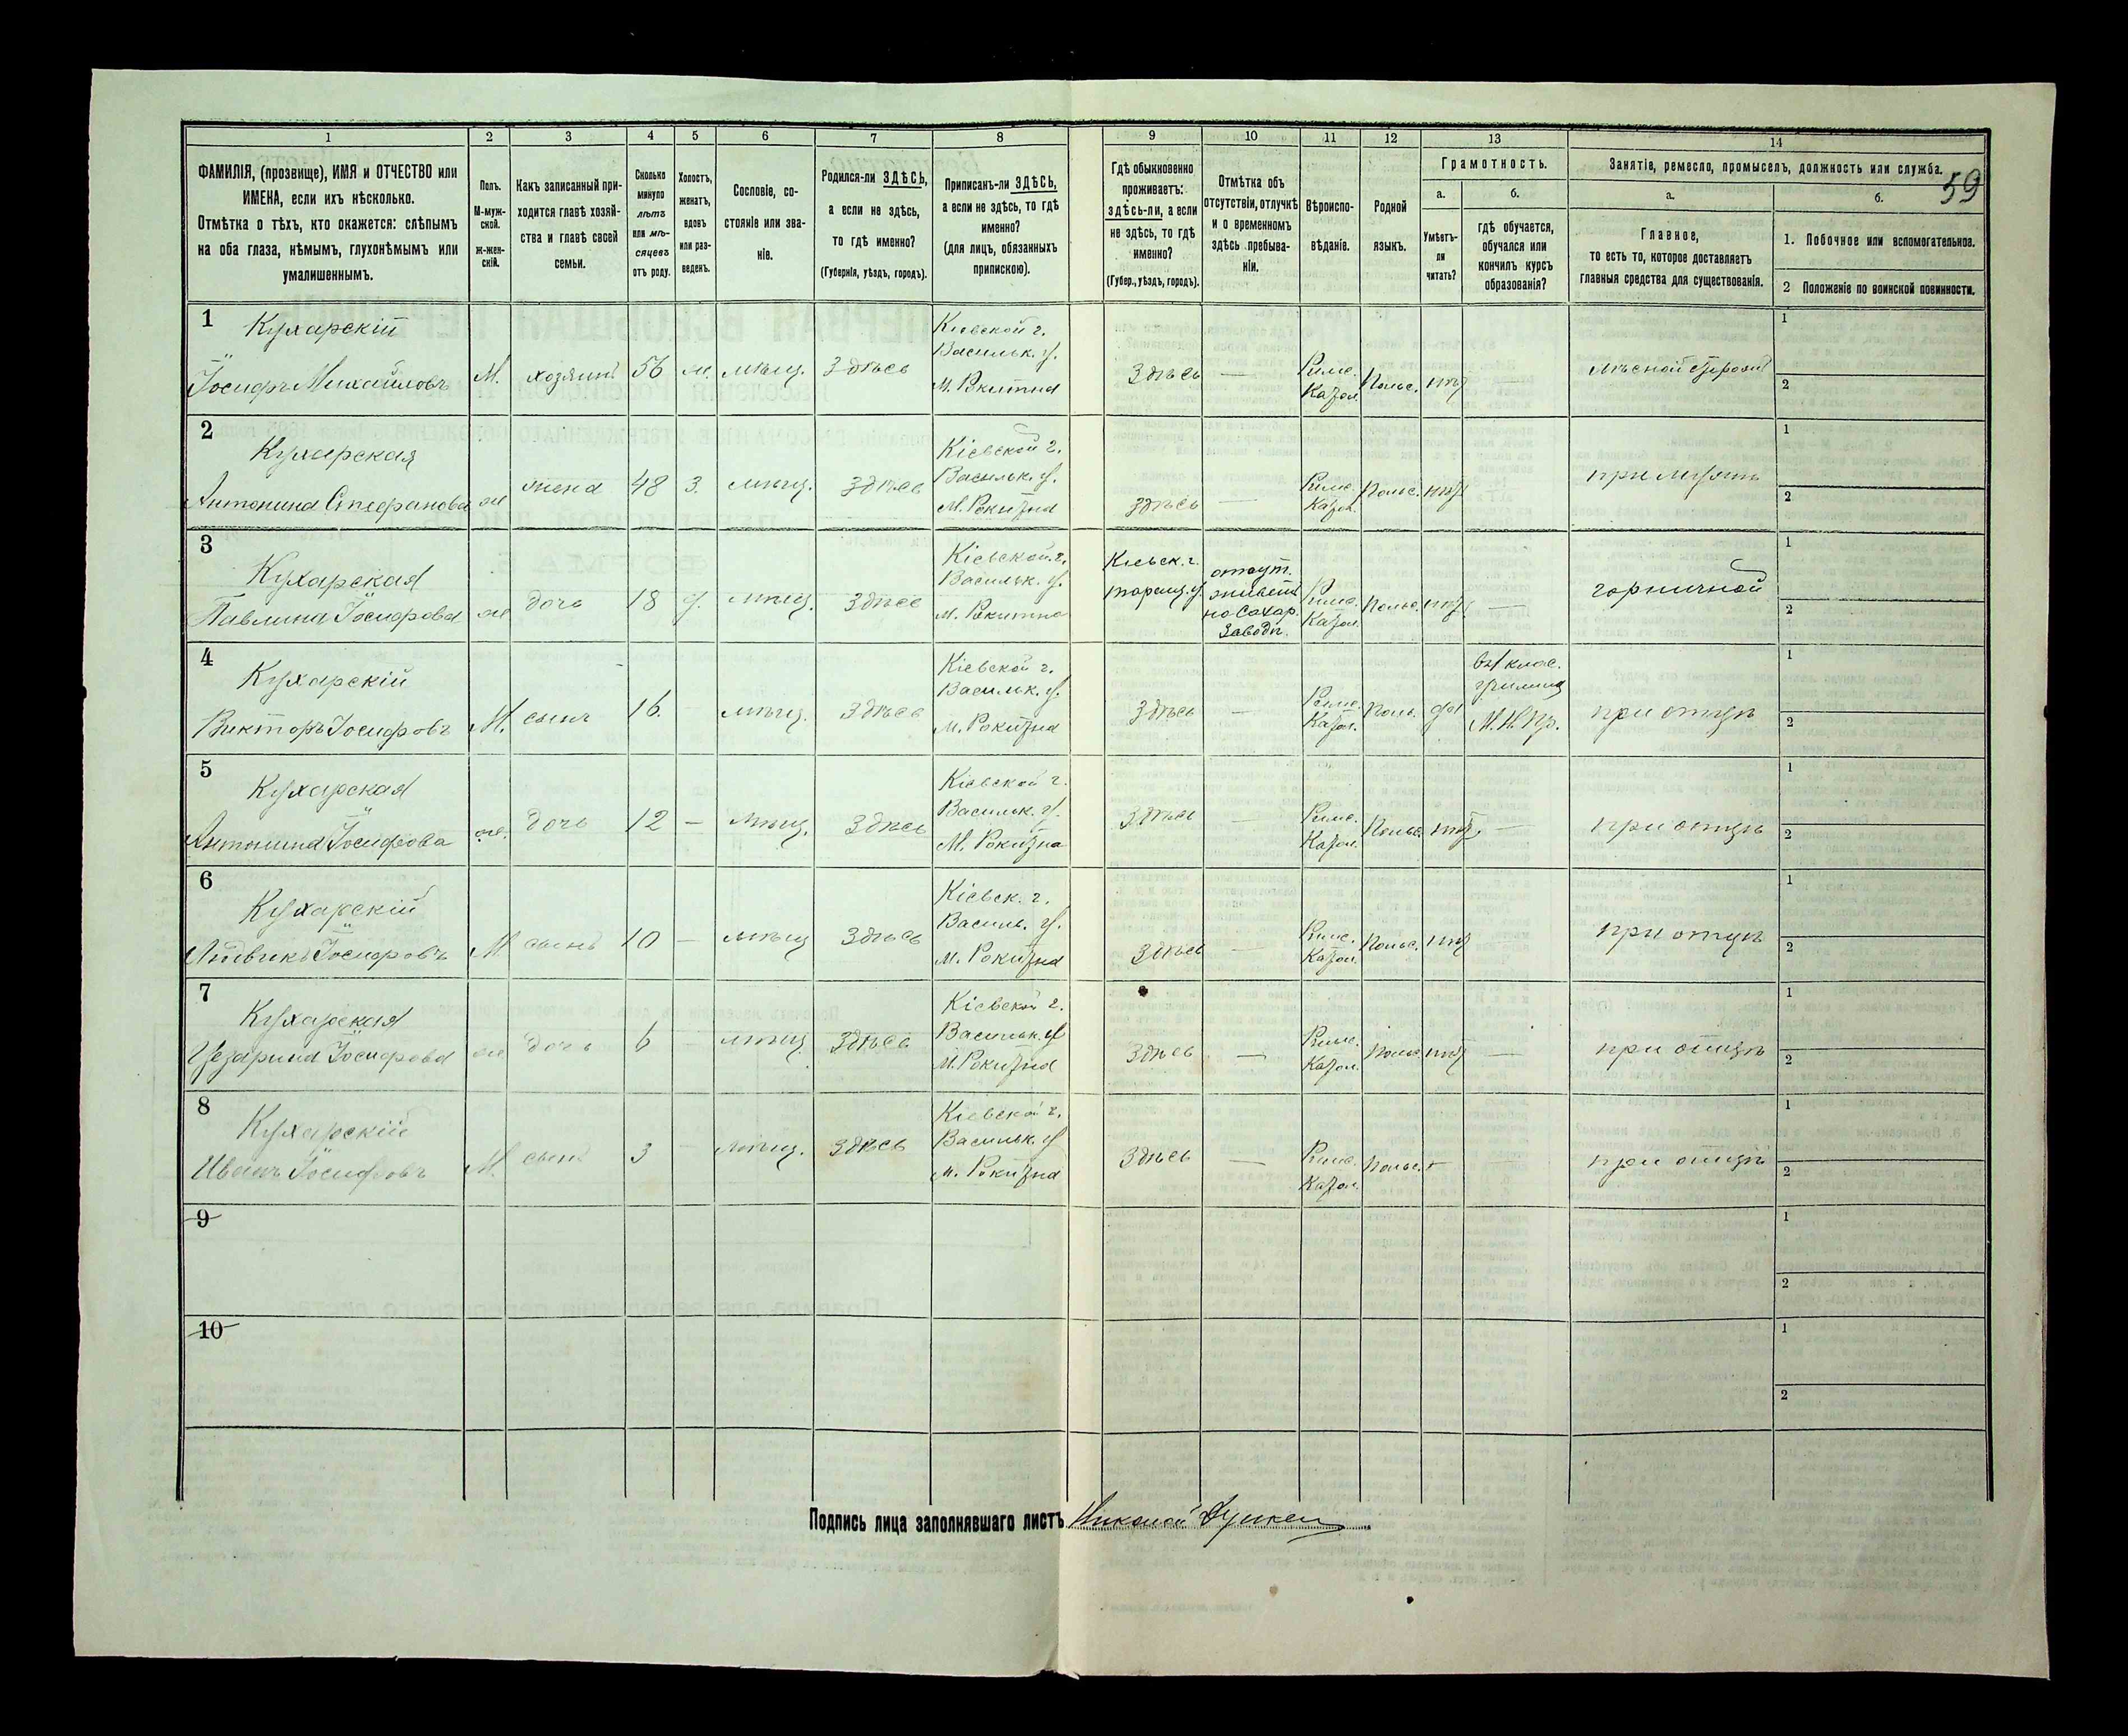 1
2
3
4
5
6
7
8
9
10
11
12
13
14
ФАМИЛІЯ, (прозвище), ИМЯ и ОТЧЕСТВО или
ИМЕНА, если ихъ нѣсколько.
Отмѣтка о тѣхъ, кто окажется: слѣпымъ
на оба глаза, нѣмымъ, глухонѣмымъ или
умалишеннымъ.
Полъ.
М-муж-
ской.
ж-жен-
скій.
Какъ записанный при-
ходится главѣ хозяй-
ства и главѣ своей
семьи.
Сколько
минуло
лѣтъ
или мѣ-
сяцевъ
отъ роду.
Холостъ,
женатъ,
вдовъ
или раз-
веденъ.
Сословіе, со-
стояніе или зва-
ніе.
Родился-ли ЗДѢСЬ,
а если не здѣсь,
то гдѣ именно?
(Губернія, уѣздъ, городъ).
Приписанъ-ли ЗДѢСЬ,
а если не здѣсь, то гдѣ
именно?
(для лицъ, обязанныхъ
припискою).
Гдѣ обыкновенно
проживаетъ:
здѣсь-ли, а если
не здѣсь, то гдѣ
именно?
(Губер., уѣздъ, городъ).
Отмѣтка объ
отсутствіи, отлучкѣ
и о временномъ
здѣсь пребыва-
ніи.
Вѣроиспо-
вѣданіе.
Родной
языкъ.
Грамотность.
а.
Умѣетъ-
ли
читать?
б.
гдѣ обучается,
обучался или
кончилъ курсъ
образованія?
Занятіе, ремесло, промыселъ, должность или служба.
59
а.
Главное,
то есть то, которое доставляетъ
главныя средства для существованія.
б.
1. Побочное или вспомогательное.
2 Положеніе по воинской повинности.
1
Кухарскій
Іосифъ Михайловъ
М. хозяинъ 56 ж. мѣщ. Здѣсь
Кіевской г.
Васильк. у.
м. Рокитна
Здѣсь —
Римс.
Катол.
Польс. нѣт —
лѣсной сторож
1
2
2
Кухарская
Антонина Стефанова
ж жена 48 З. мѣщ. Здѣсь
Кіевской г.
Васильк. у.
м. Рокитна
Здѣсь —
Римс.
Катол.
Польс. нѣт
при мужѣ
1
2
3
Кухарская
Павлина Іосифова
ж дочь 18 д. мѣщ. Здѣсь
Кіевской г.
Васильк. у.
м. Рокитна
Кіевск. г.
таращ. у.
отсут.
живет
на Сахар.
Заводѣ.
Римс.
Катол.
Польс. нѣт —
горничной
1
2
4
Кухарскій
Викторъ Іосифовъ
М. сынъ 16. - мѣщ. Здѣсь
Кіевской г.
Васильк. у.
м. Рокитна
Здѣсь —
Римс.
Катол.
Поль. да
М. Н. Пр.
при отцѣ
1
2
5
Кухарская
Антонина Іосифова
ж. дочь 12 — мѣщ. Здѣсь
Кіевской г.
Васильк. у.
М. Рокитна
Здѣсь —
Римс.
Катол.
Польс. нѣт —
при отцѣ
1
2
6
Кухарскій
Людвикъ Іосифовъ
М сынъ 10 — мѣщ Здѣсь
Кіевск. г.
Василь. у.
м. Рокитна
Здѣсь —
Римс.
Катол.
Польс. нѣт
при отцѣ
1
2
7
Кухарская
Цезарина Іосифова
ж дочь 6 - мѣщ. Здѣсь
Кіевской г.
Васильк. у
М. Рокитна
Здѣсь —
Римс.
Катол.
Польс. нѣт —
при отцѣ
1
2
8
Кухарскій
Иванъ Іосифовъ
М. сынъ 3 - мѣщ. Здѣсь
Кіевской г.
Васильк. у
м. Рокитна
Здѣсь —
Римс.
Катол.
Польс. -
при отцѣ
1
2
9
1
2
10
1
2
Подпись лица заполнявшаго листъ Николай